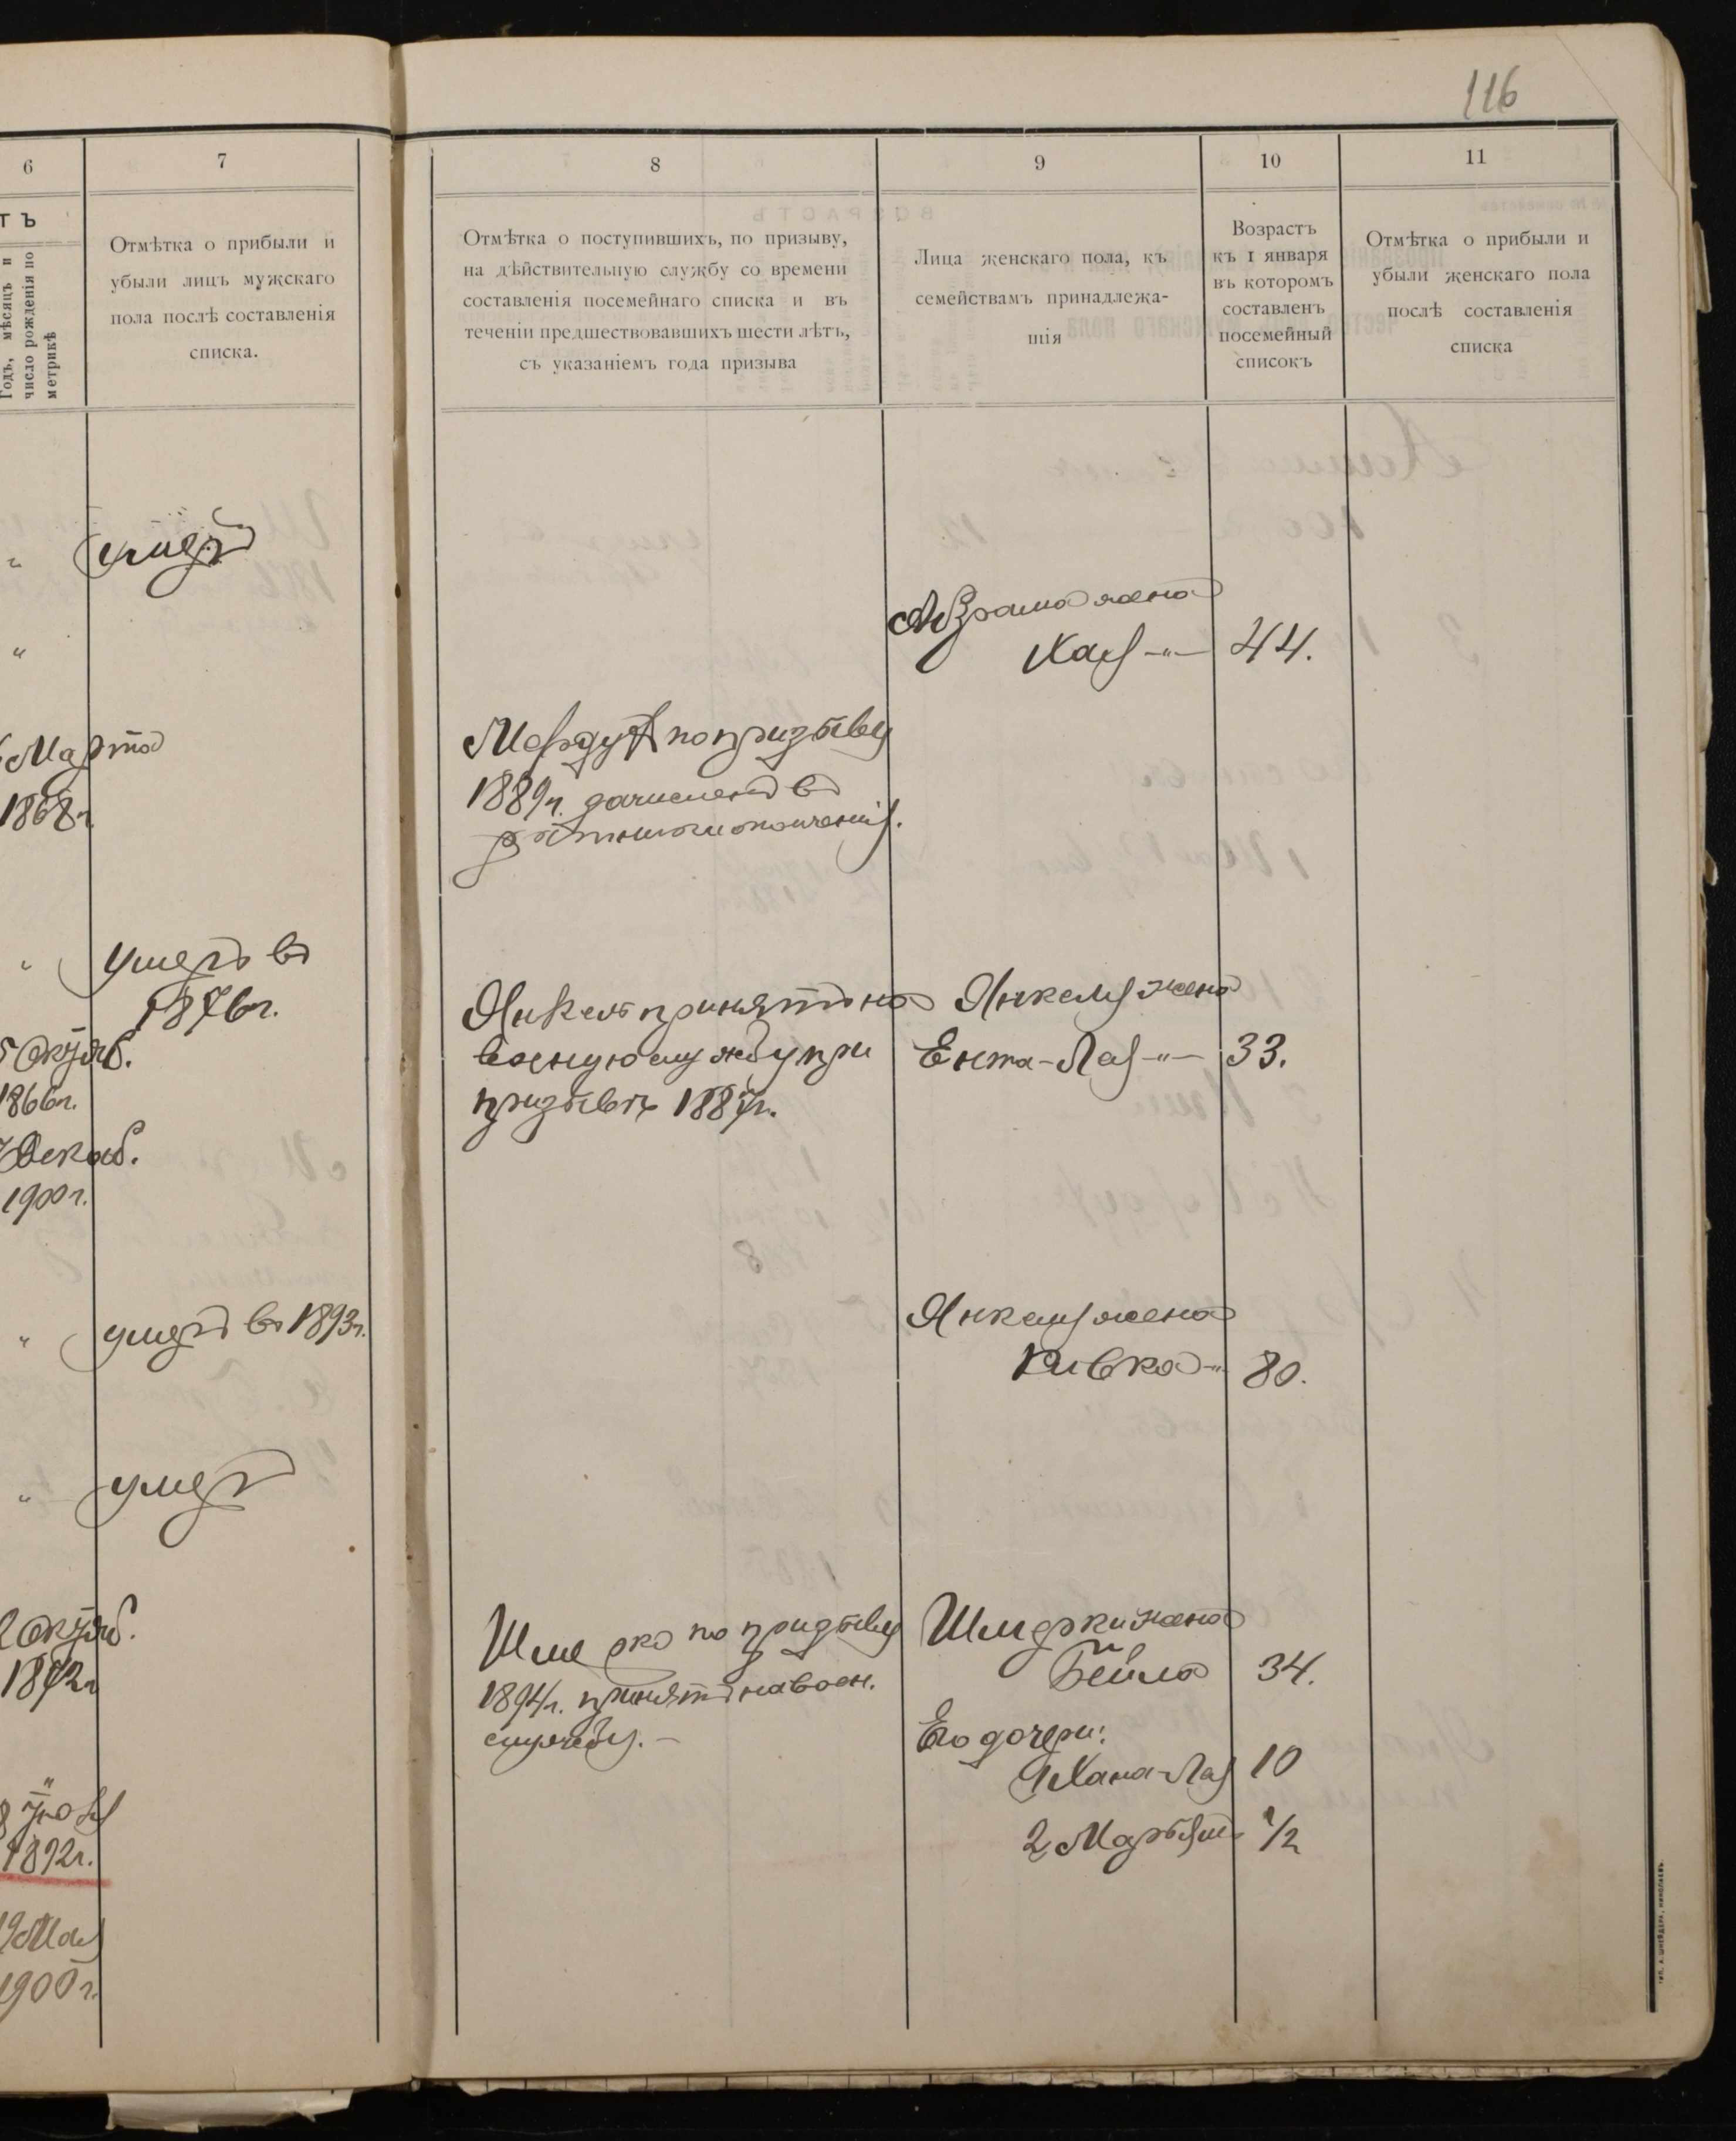 116
6
7
8
9
10
11
тъ
Годъ, мѣсяцъ и
число рожденія по
метрикѣ
Отмѣтка о прибыли и
убыли лицъ мужскаго
пола послѣ составленія
списка.
Отмѣтка о поступившихъ, по призыву,
на дѣйствительную службу со времени
составленія посемейнаго списка и въ
теченіи предшествовавшихъ шести лѣтъ,
съ указаніемъ года призыва
Лица женскаго пола, къ
семействамъ принадлежа-
щія
Возрастъ
къ 1 января
въ которомъ
составленъ
посемейный
списокъ
Отмѣтка о прибыли и
убыли женскаго пола
послѣ составленія
списка
" умеръ
Абрама жена
" Хая -"- 44.
Марта
1868г.
Мордух по призыву
1889г. зачисленъ въ
ратники ополченія.
" умеръ въ
1876г.
5 Октяб.
1866г.
Янкель принятъ на
военную службу при
призывѣ 1887г.
Янкеля жена
Ента-Лая -"- 33.
Декаб.
1900г.
" умеръ въ 1893г.
Янкеля жена
Ривка -"- 80.
" умеръ
2 Октяб.
1872г.
Шмерко по призыву
1894г. принятъ на воен.
службу. -
Шмерки жена
Бейла 34.
Его дочери:
1 Хана-Лая 10
2 Марьям 1/2
8 Іюля
1892г.
19 Мая
1900г.
тип. А. Шнейдера, Николаевъ.